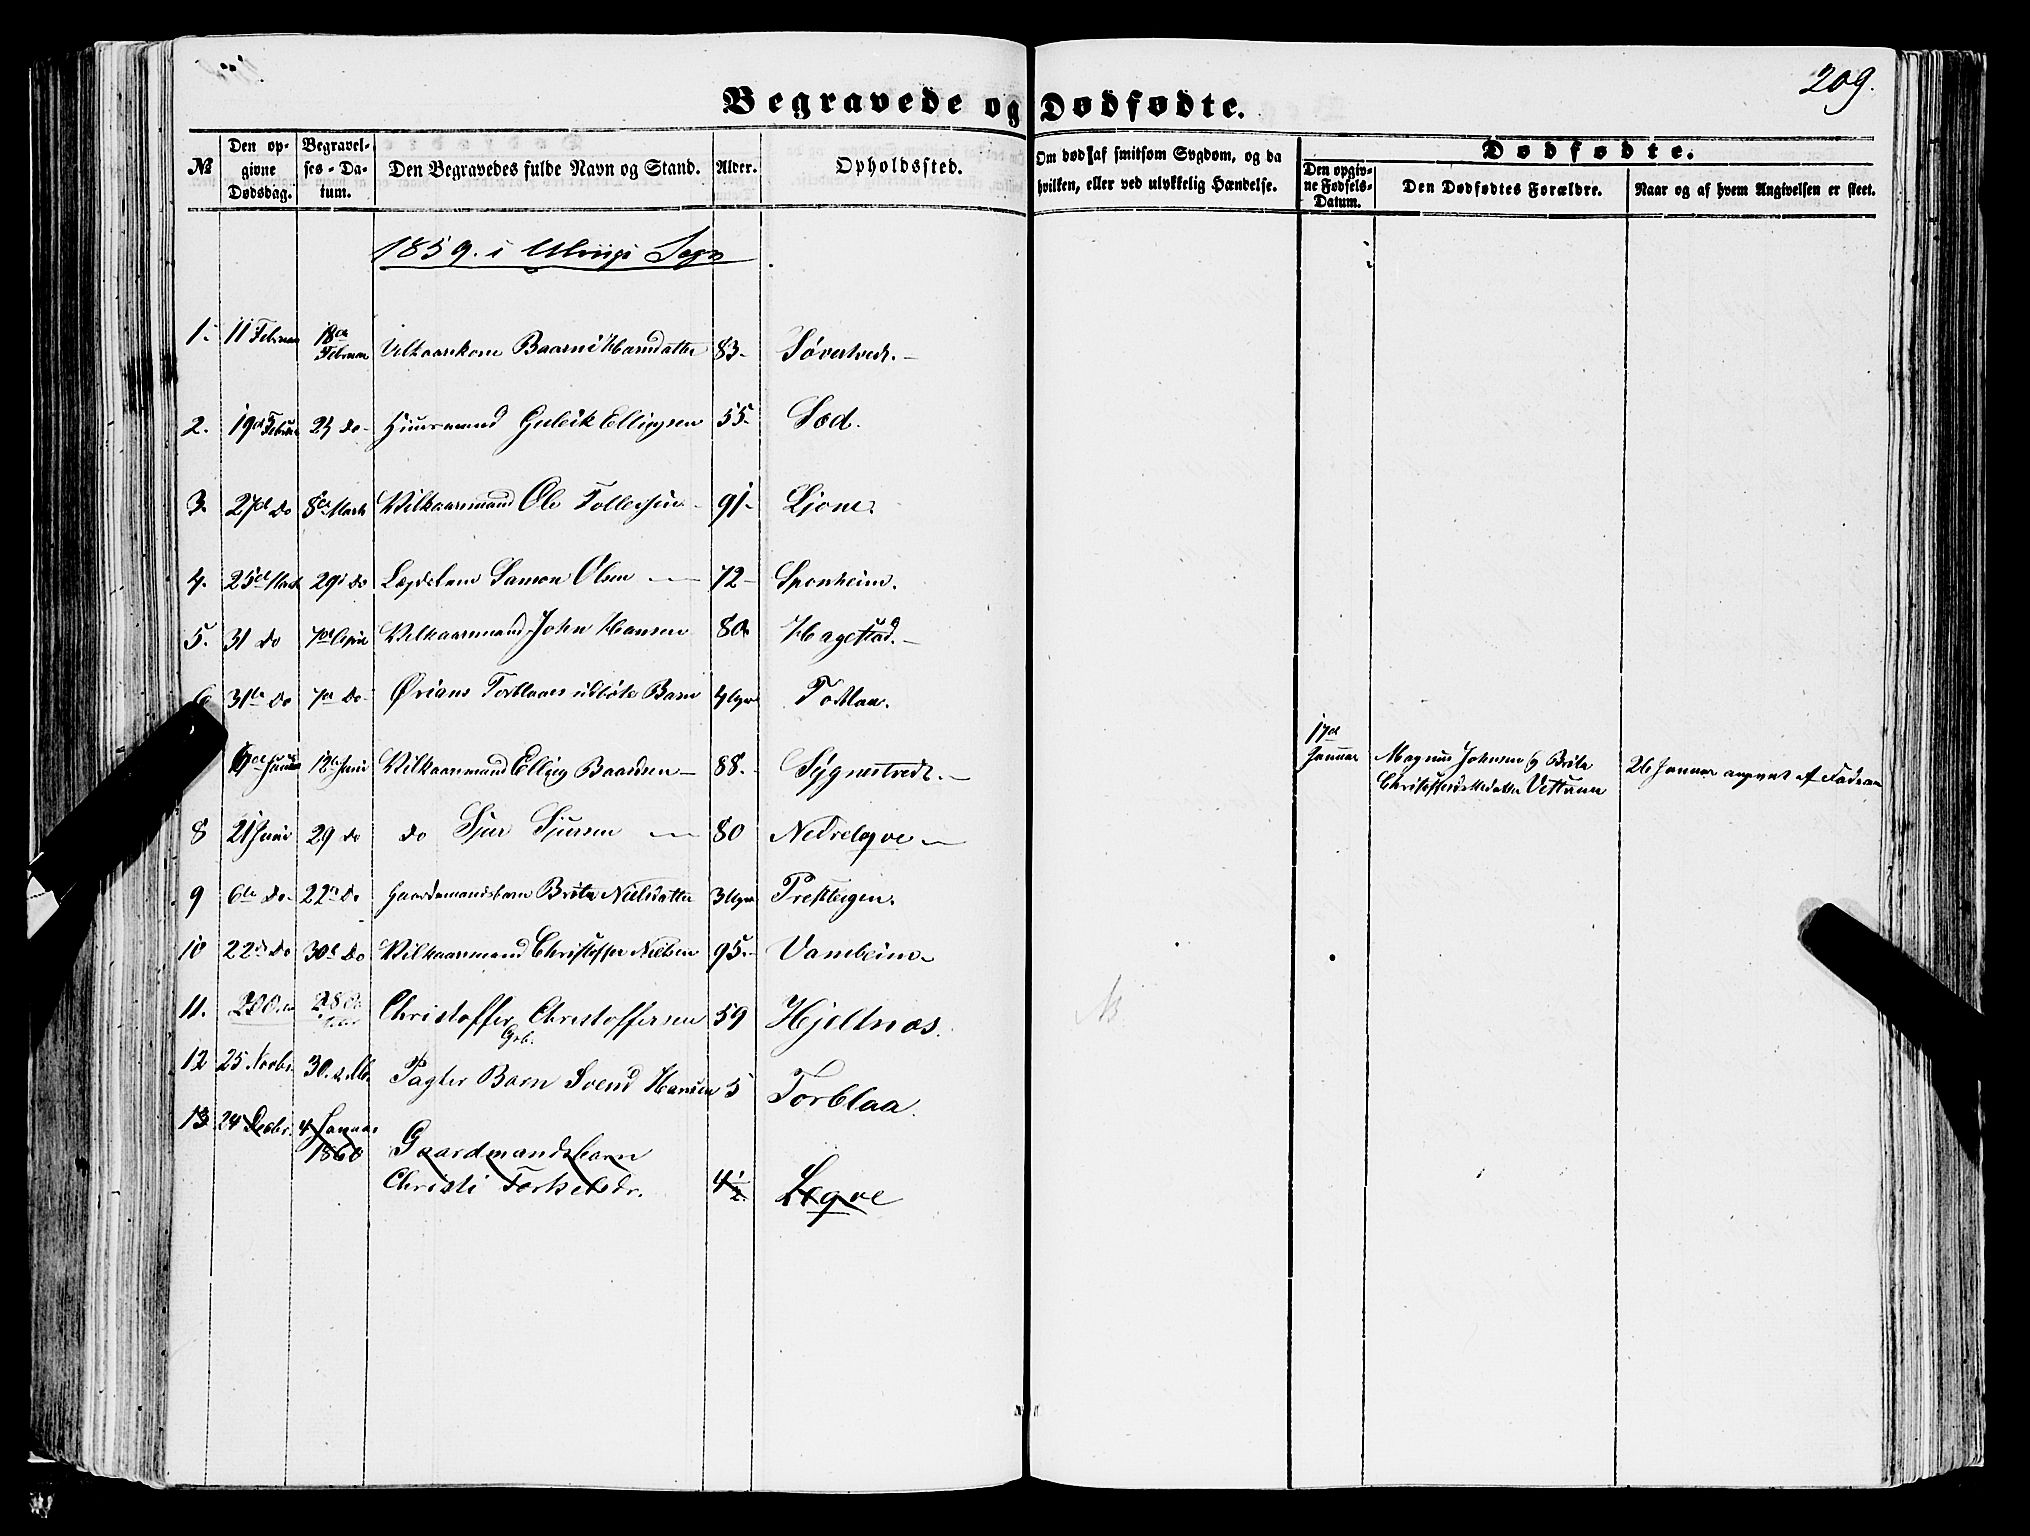 209.
Begravede og Dødfødte.
№ Den opgivne Dødsdag. Begravelses-Datum. Den Begravedes fulde Navn og Stand. Alder. Opholdssted. Om død af smitsom Sygdom, og da hvilken, eller ved ulykkelig Hændelse. Dødfødte. Den opgivne Fødsels-Datum. Den Dødfødtes Forældre. Naar og af hvem Angivelsen er skeet.
1859. i Ulvigs Sogn
1. 11 Februar 18de Februar Vilkaarskone Baarni Hansdatter 83 Søvertvedt.
2. 19de Februar 23 do Huusmand Guleik Ellingsen 55 Sod.
3. 27de Do 8de Marts Vilkaarsmand Ole Tollevsen 91 Ljone.
4. 25de Marts 29 do Lægdslem Samson Olsen 72 Sponheim.
5. 31 do 7de April Vilkaarsmand John Hansen 80 Hagestad.
6 31te do 7de Do Torblaaes udøbte Barn Torblaa.
Juni 12te Juni Vilkaarsmand Elling Baardsen 88. Sygnestvedt.
17de Januar Magnus Johnsen & Brita Christoffersdatter 26 Januar angivet af Faderen
8 21 Juni 29 do do Sjur Sjursen 80 Nedreleqve
9 6te Do 22de Do Gaardmandsbarn Brita Nielsdatter Prestteigen.
10 22de Do 30te Do Vilkaarsmand Christoffer Nielsen 95 Vambeim
11. Christoffer Christoffersen 59 Hjeltnæs.
Grb.
12 25 Novbr. 30. Pagter Barn Svend Hansen 5 Torblaa.
13 24 Decbr. 4 Januar 1860 Gaardmandsbarn
Christi Torkelsdr. 4½ Leqve